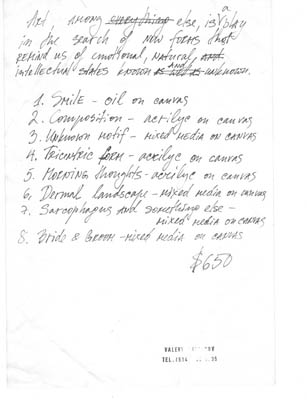 Art, among everything else, is a play
in the search of new forms that
remind us of emotional, natural, and
intellectual states known as well as AND unknown.
1. Smile - oil on canvas
2. Composition - acrilyc on canvas
3. Unknown motif - mixed media on canvas
4. Tricentric form - acrilyc on canvas
5. thoughts - acrilyc on canvas
6. Dermal landscape - mixed media on canvas
7. Sarcophagus and something else -
mixed media on canvas
8. Bride & Groom - mixed media on canvas
$650
VALERY
TEL.